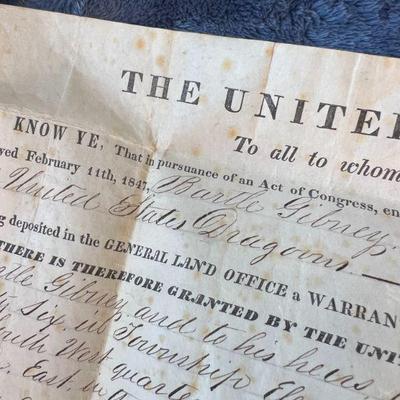 THE UNITE
To all to whom
KNOW YE, That in pursuance of an Act of Congress, en
ved February 11th, 1847, Bartle Gibney
United States Dragoons
g deposited in the GENERAL LAND OFFICE a WARRAN
THERE IS THEREFORE GRANTED BY THE UNIT
tle Gibney and to his heirs
Six in Township
uth West quarte
East in